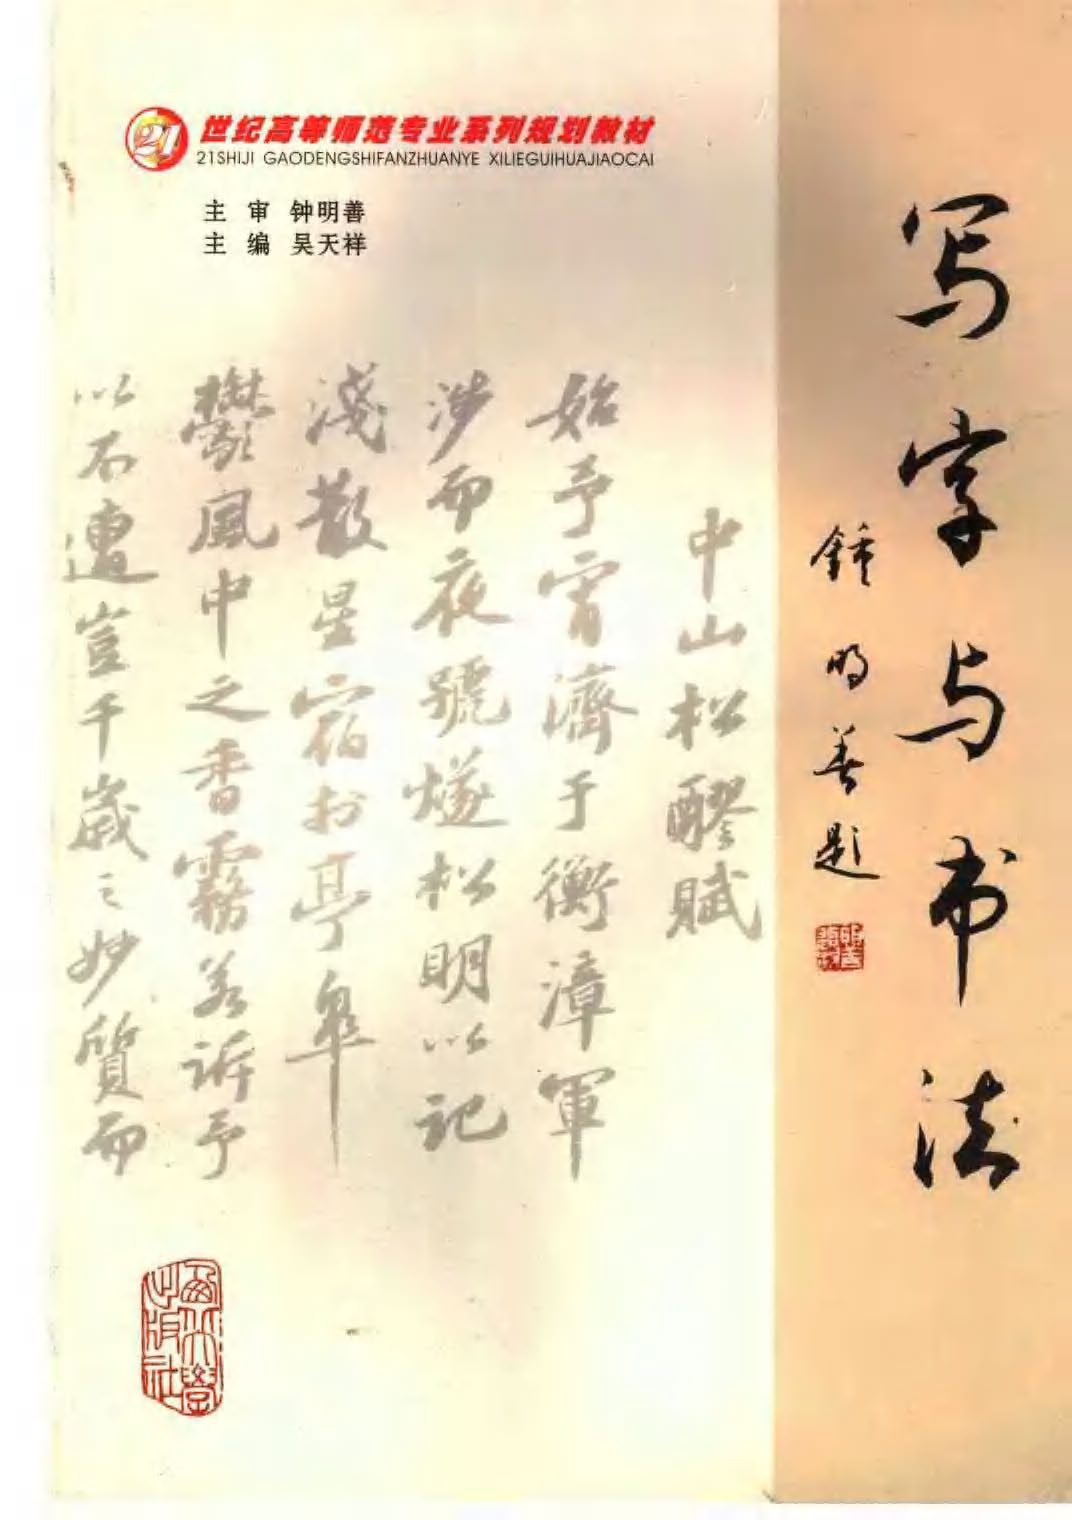 21世纪高等师范专业系列规划教材
21SHIJI GAODENGSHIFANZHUANYE XILIEGUIHUAJIAOCAI
主 审 钟明善
主 编 吴天祥
写字与书法
鍾明善题
中山松醪賦
始予宵濟于衡漳軍
涉而夜號燧松明以記
淺散星宿於亭皋
鬱風中之香霧若訴予
以不遭豈千歲之妙質而
西北大學出版社